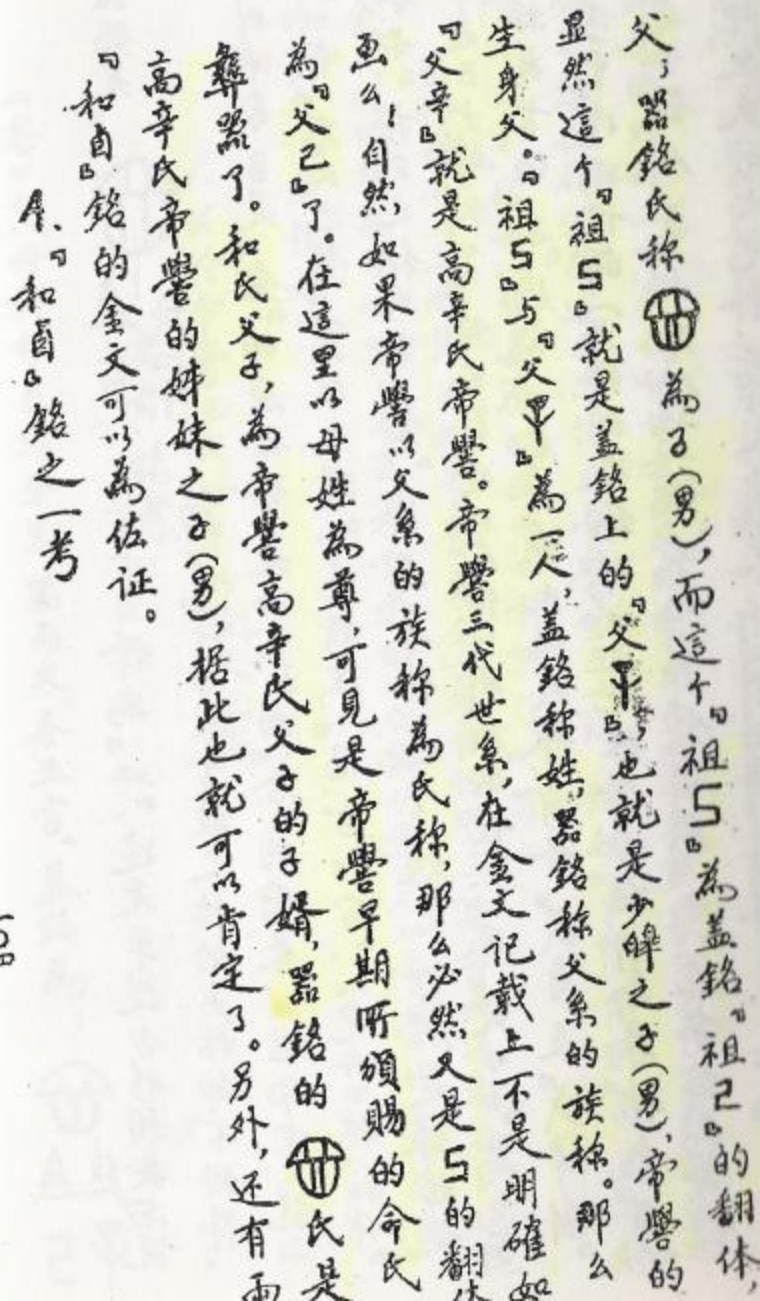 父，器銘氏称為子(男)，而這个『祖S』為盖銘『祖己』的翻体，
显然這个『祖S』就是盖銘上的『父』，也就是少皞之子(男)，帝嚳的
生身父。『祖S』与『父』為一人，盖銘称姓，器銘称父系的族称。那么
『父辛』就是高辛氏帝嚳。帝嚳三代世系，在金文记载上不是明確如
画么！自然，如果帝嚳以父系的族称為氏称，那么必然又是S的翻体
為『父己』了。在這里以母姓為尊，可見是帝嚳早期所頒賜的命氏
彝器了。和氏父子，為帝嚳高辛氏父子的子婿，器銘的氏是
高辛氏帝嚳的姊妹之子(男)，据此也就可以肯定了。另外，还有両
『和卣』銘的金文可以為佐证。
4.『和卣』銘之一考
108